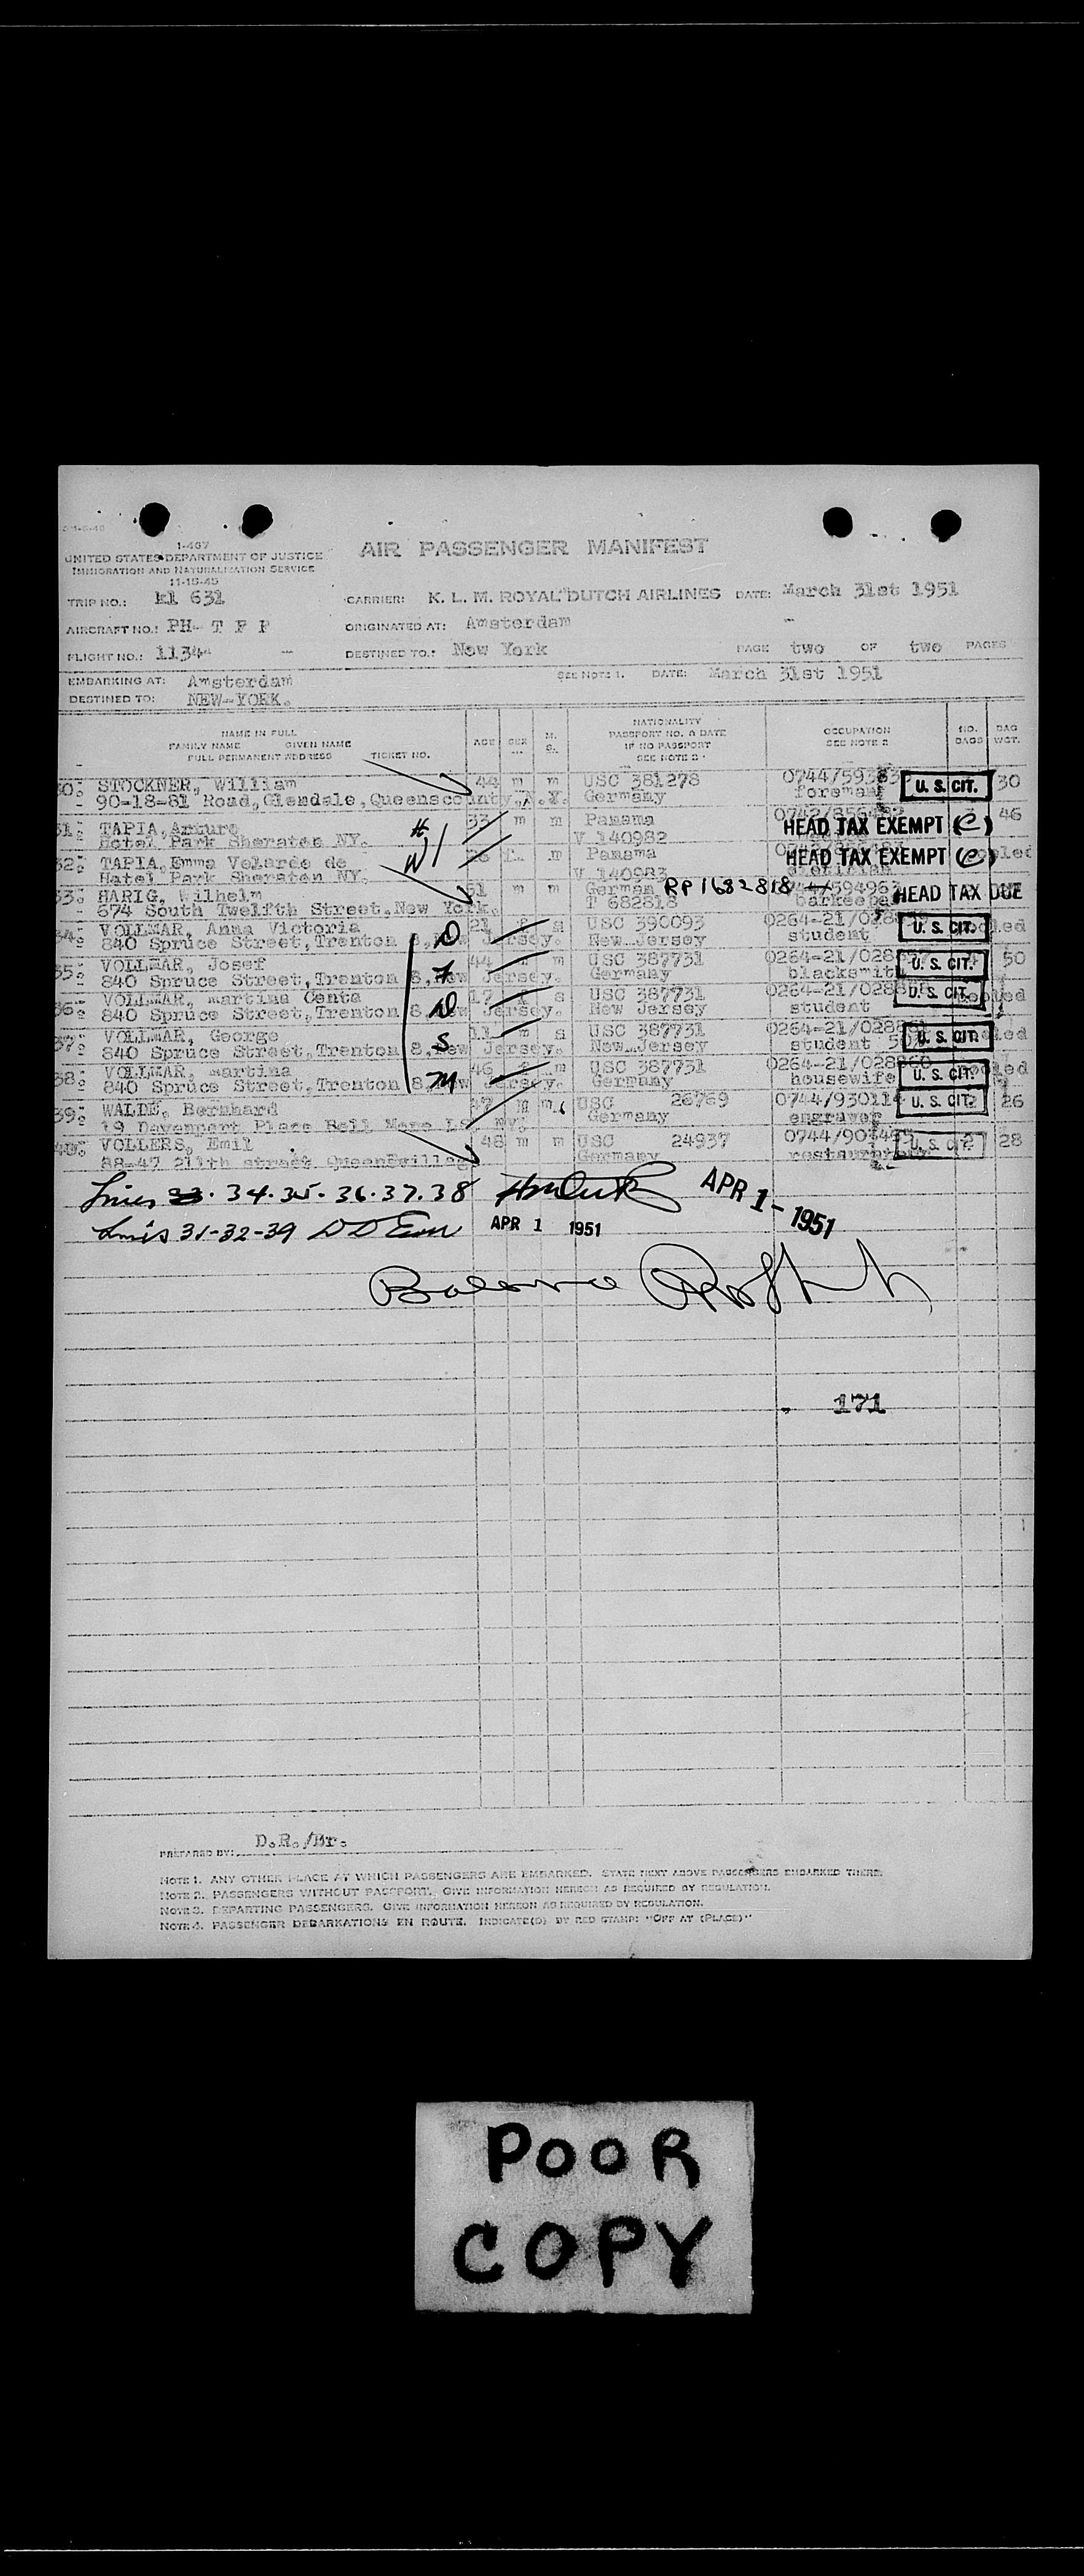 1-467
UNITED STATES DEPARTMENT OF JUSTICE
IMMIGRATION AND NATURALIZATION SERVICE
11-15-45
AIR PASSENGER MANIFEST
TRIP NO.: kl 631 CARRIER: K. L. M. ROYAL DUTCH AIRLINES DATE: March 31st 1951
AIRCRAFT NO.: PH- T F P ORIGINATED AT: Amsterdam
FLIGHT NO.: 1134 DESTINED TO.: New York PAGE two OF two PAGES
EMBARKING AT: Amsterdam SEE NOTE 1. DATE: March 31st 1951
DESTINED TO: NEW-YORK.
NAME IN FULL
FAMILY NAME GIVEN NAME
FULL PERMANENT ADDRESS TICKET NO.
AGE SEX M. S.
NATIONALITY
PASSPORT NO. & DATE
IF NO PASSPORT
SEE NOTE 2
OCCUPATION
SEE NOTE 2
NO. BAGS BAG WGT.
STOCKNER, William 44 m m USC 381278 U. S. CIT. 30
90-18-81 Road, Glendale, Queenscounty, N.Y. Germany foreman
31. TAPIA, Arturo H 33 m m Panama 46
Hotel Park Sheraton NY. V 140982 HEAD TAX EXEMPT (e)
32. TAPIA, Emma Velarde de W m Panama HEAD TAX EXEMPT (e)
Hotel Park Sheraton NY. V 140983
33. HARIG, Wilhelm 51 m m German RP 1682818 HEAD TAX DUE
674 South Twelfth Street, New York. T 682818 barkeeper
34. VOLLMAR, Anna Victoria D 21 f s USC 390093 U. S. CIT.
840 Spruce Street, Trenton 8, New Jersey. New Jersey student
35. VOLLMAR, Josef F 44 m USC 387731 U. S. CIT. 50
840 Spruce Street, Trenton 8, New Jersey. Germany blacksmith
36. VOLLMAR, Martina Centa D 17 f s USC 387731 U. S. CIT.
840 Spruce Street, Trenton 8, New Jersey. New Jersey student
37. VOLLMAR, George S 11 m s USC 387731 U. S. CIT.
840 Spruce Street, Trenton 8, New Jersey. New Jersey student
38. VOLLMAR, Martina M 46 f m USC 387731 U. S. CIT.
840 Spruce Street, Trenton 8, New Jersey. Germany housewife
39. WALDE, Bernhard m m USC 26769 U. S. CIT. 26
19 Davenport Place Germany engraver
40. VOLLERS, Emil 48 m m USC 24937 U. S. CIT. 28
88-47 211th street Queensvillage Germany
Lines 33. 34. 35. 36. 37. 38 APR 1 - 1951
Lines 31-32-39 APR 1 1951
171
PREPARED BY: D.R./Br.
NOTE 1. ANY OTHER PLACE AT WHICH PASSENGERS ARE EMBARKED. STATE NEXT ABOVE PASSENGERS EMBARKED THERE.
NOTE 2. PASSENGERS WITHOUT PASSPORT. GIVE INFORMATION HEREON AS REQUIRED BY REGULATION.
NOTE 3. DEPARTING PASSENGERS. GIVE INFORMATION HEREON AS REQUIRED BY REGULATION.
NOTE 4. PASSENGER DEBARKATIONS EN ROUTE. INDICATE(D) BY RED STAMP: "OFF AT (PLACE)"
POOR
COPY